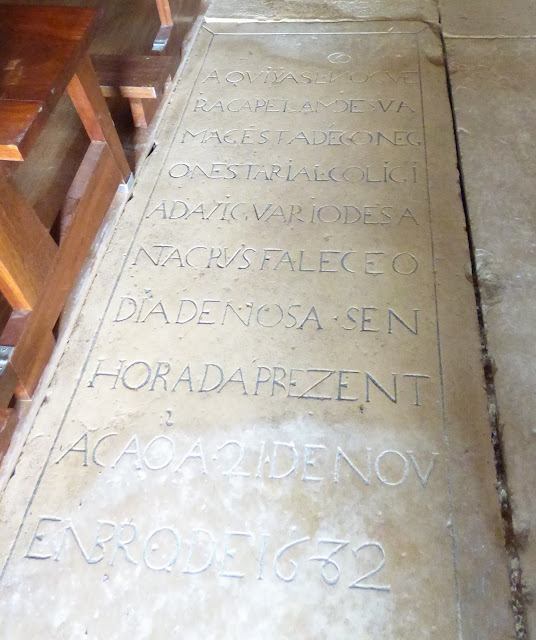 AQVIYAS
RACAPELAMDESVA
MAGESTADECONEG
ONESTARIALCOLIGI
ADAVIGVARIODESA
NTACRVSFALECEO
DIADENOSA·SEN
HORADAPREZENT
ACAÕA·21DENOV
ENBRODE1632